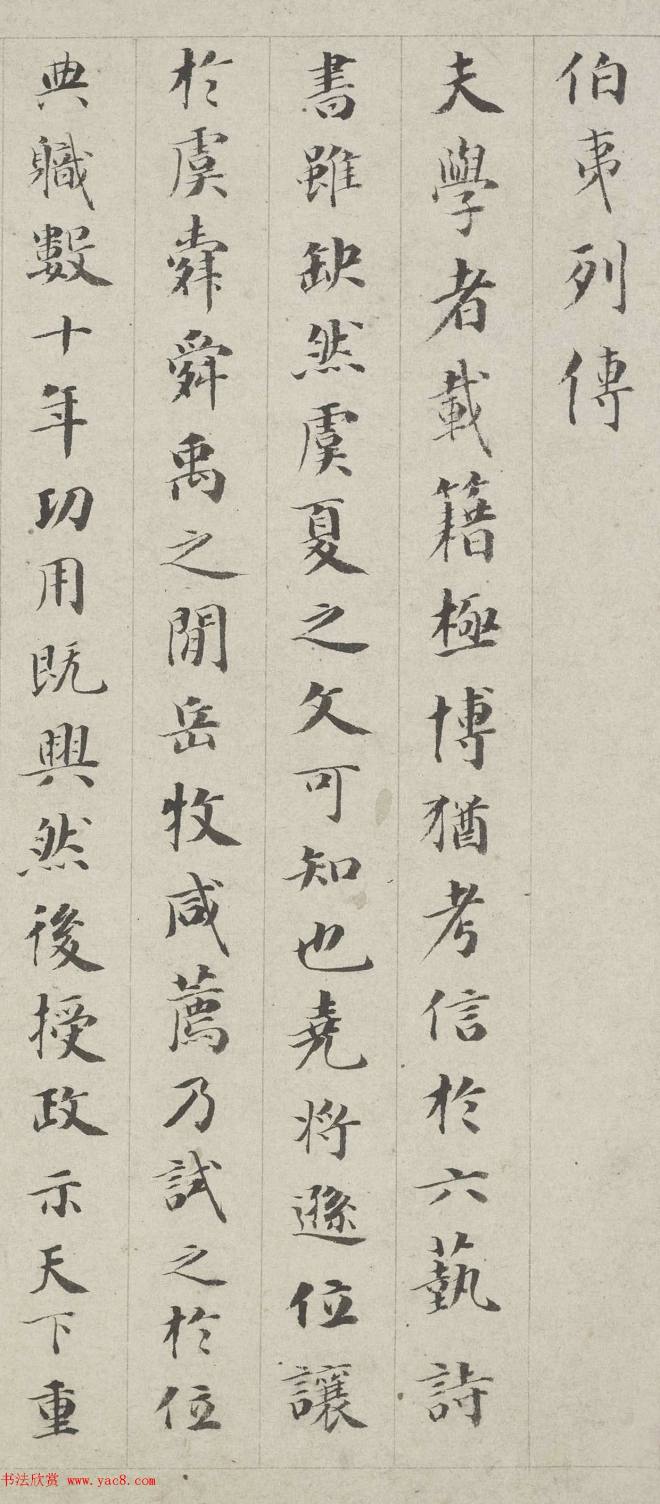 伯夷列傳
夫學者載籍極博猶考信於六藝詩
書雖缺然虞夏之文可知也堯將遜位讓
於虞舜舜禹之閒岳牧咸薦乃試之於位
典軄數十年功用既興然後授政示天下重
书法欣赏 www.yac8.com